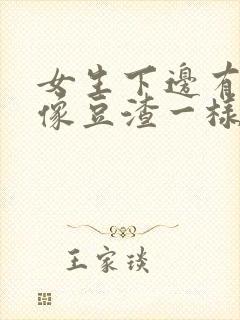 女生下邊有
像豆渣一樣
王家琰